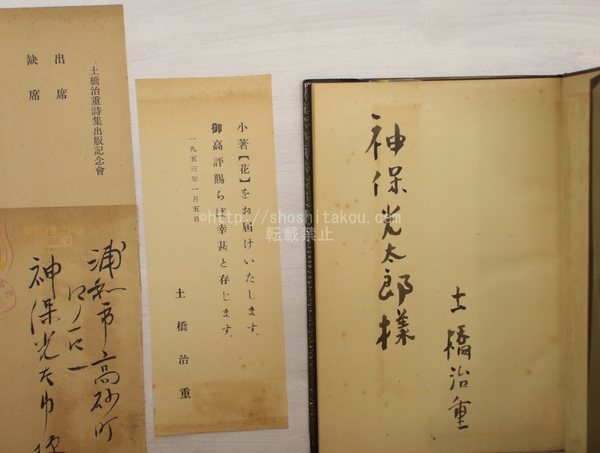 土橋治重詩集出版記念會
出席
缺席
浦和市高砂町
神保光太郎様
小著【花】をお届けいたします。
御高評賜らば幸甚と存じます。
一九五三年一月五日
土橋治重
神保光太郎様
土橋治重
©http://shoshitakou.com
転載禁止